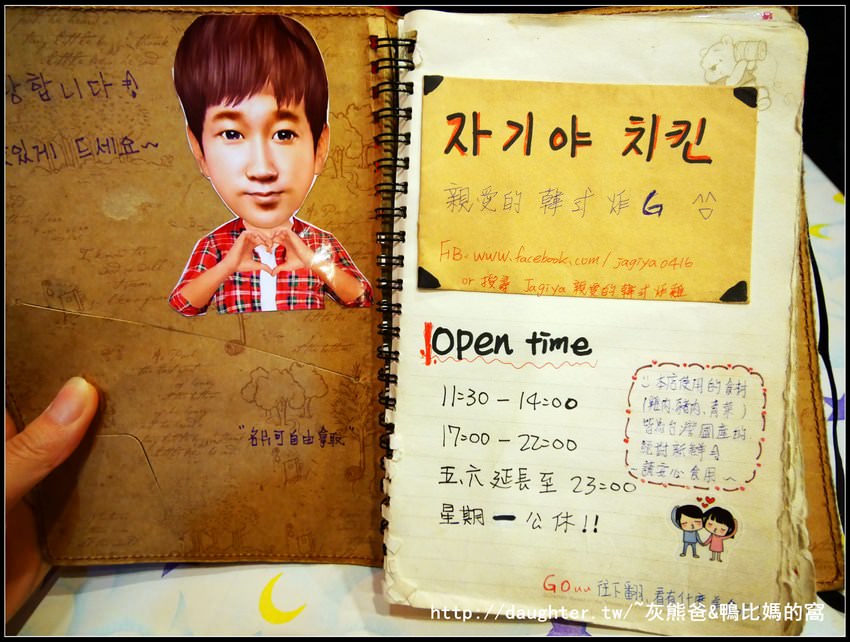 합니다
있게 드세요~
"名片可自由拿取"
자기야 치킨
親愛的 韓式 炸G
FB:www.facebook.com/jagiya0416
or 搜尋 Jagiya 親愛的韓式炸雞
Open time
11:30 - 14:00
17:00 - 22:00
五、六 延長至 23:00
星期一公休!!
本店使用的食材
(雞肉、豬肉、青菜)
皆為台灣國產的
絕對新鮮
請安心食用
GOuu 往下翻,看有什麼
http://daughter.tw/~灰熊爸&鴨比媽的窩